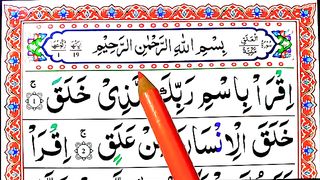 بِسْمِ اللّٰهِ الرَّحْمٰنِ الرَّحِيْمِ
19 1
اِقْرَاْ بِاسْمِ رَبِّكَ الَّذِىْ خَلَقَ ۚ ١
خَلَقَ الْاِنْسَانَ مِنْ عَلَقٍ ۚ ٢ اِقْرَاْ